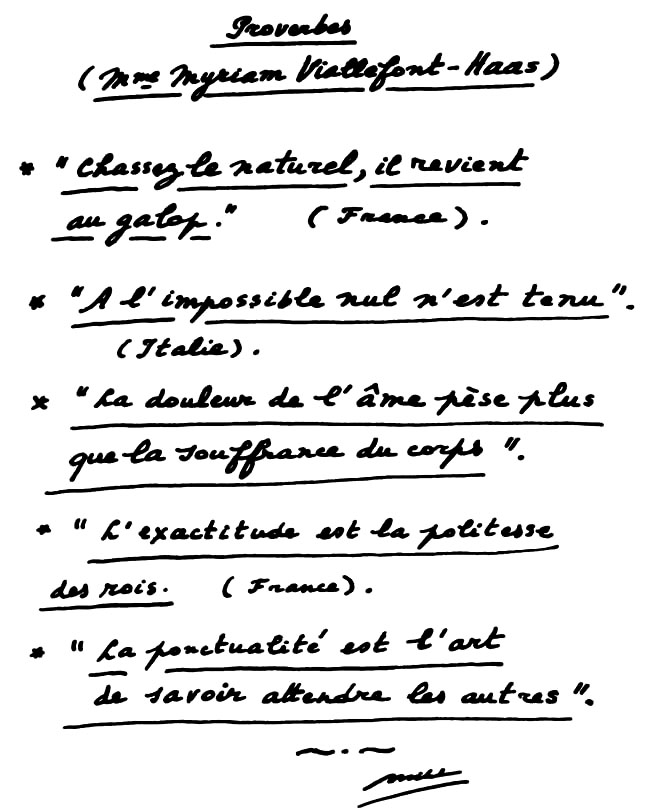 Proverbes
(Mme Myriam Viallefont-Haas)
* "Chassez le naturel, il revient
au galop." (France).
* "A l'impossible nul n'est tenu".
(Italie).
* "La douleur de l'âme pèse plus
que la souffrance du corps".
* "L'exactitude est la politesse
des rois. (France).
* "La ponctualité est l'art
de savoir attendre les autres".